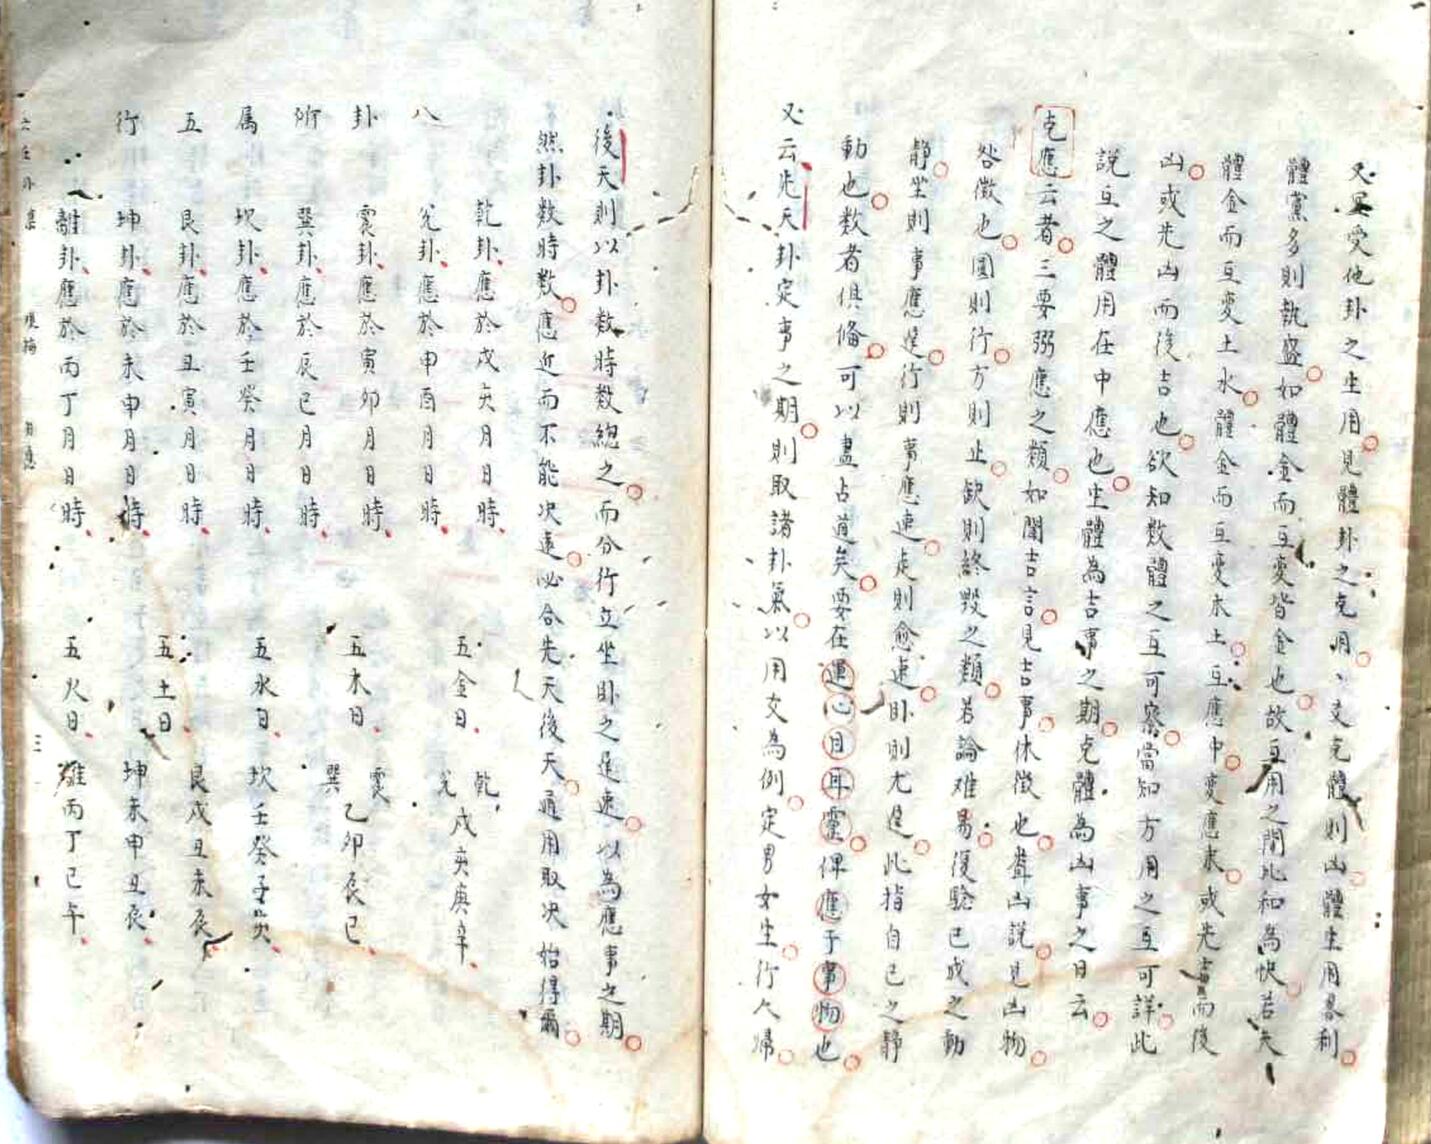 又要受他卦之生用見體卦之克用、交克體則凶體生用畧利
體黨多則執盛如體金而互變皆金也故互用之間比和為快若夫
體金而互變土水體金而互變木土互應中變應末或先吉而後
凶或先凶而後吉也欲知数體之互可察當知方用之互可詳此
說互之體用在中應也生體為吉事之期克體為凶事之日云
克應云者三要弼應之類如聞吉言見吉事休徵也聋凶說見凶物
咎徵也圆則行方則止缺則終毀之類若論难易復驗已成之動
靜坐則事應遲行則事應速走則愈速卧則尤遲此指自己之靜
動也数者俱偹可以盡占道矣要在運心目耳靈俾應于事物也
又云先天卦定事之期則取諸卦氣以用爻為例定男女生行人歸
後天則以卦数時数總之而分行立坐卧之遲速以為應事之期
然卦数時数應近而不能决遠必合先天後天通用取决始得爾
八卦所属五行
乾卦應於戌亥月日時
兌卦應於申酉月日時
震卦應於寅卯月日時
巽卦應於辰巳月日時
坎卦應於壬癸月日時
艮卦應於丑寅月日時
坤卦應於未申月日時
離卦應於丙丁月日時
五金日 乾兌戌亥庚辛
五木日 震巽乙卯辰巳
五水日 坎壬癸子亥
五土日 艮戌丑未辰
坤未申丑辰
五火日 離丙丁巳午